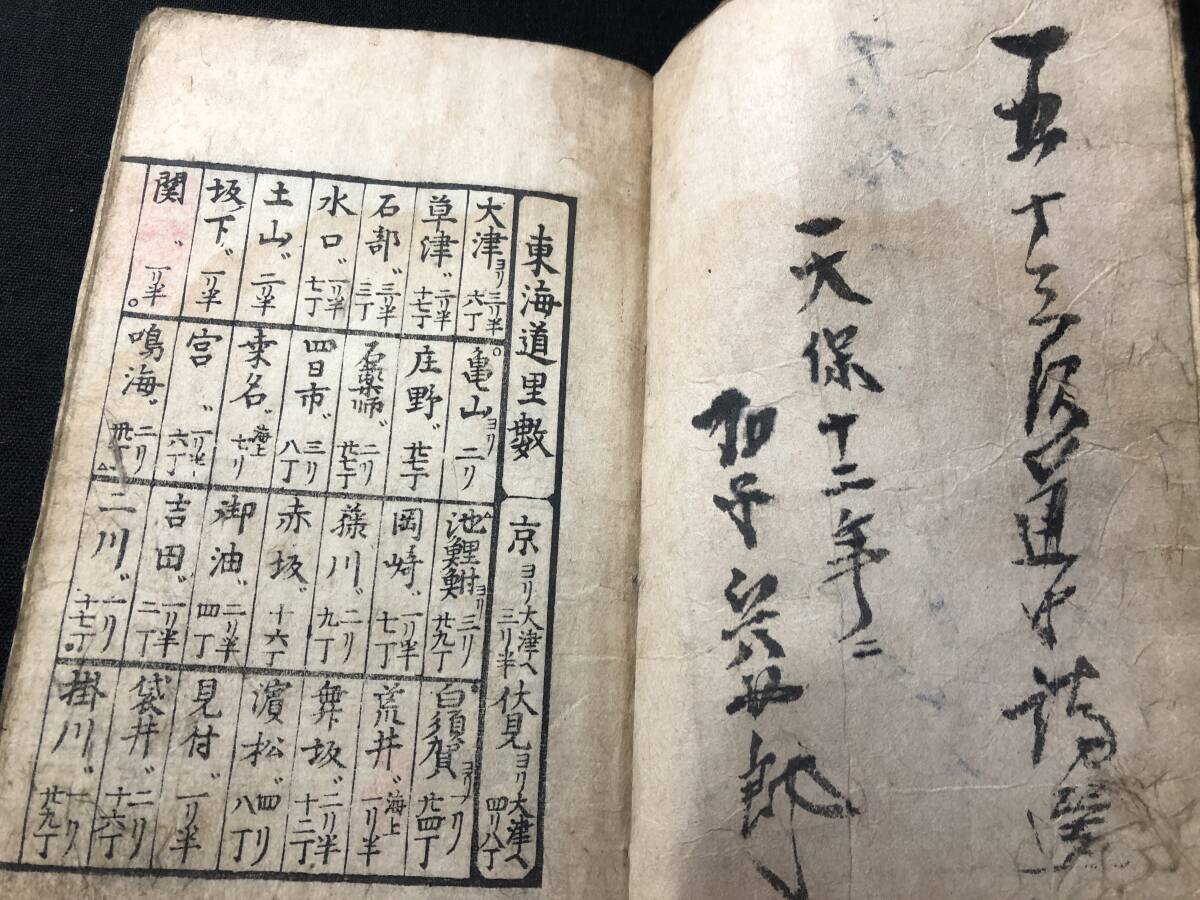 五十三次
天保十二年
東海道里數
京ヨリ大津ヘ三リ半 伏見ヨリ大津ヘ四リ八丁
大津ヨリ三リ半六丁
草津〃二リ半十七丁
石部〃三リ半三丁
水口〃二リ半七丁
土山〃二リ半
坂ノ下〃一リ半
関〃一リ半
亀山ヨリ二リ
庄野〃廿七丁
石薬師〃二リ廿七丁
四日市〃三リ八丁
桑名〃海上七リ
宮〃一リ半六丁
鳴海〃二リ卅丁
池鯉鮒ヨリ三リ廿九丁
岡崎〃一リ半七丁
藤川〃二リ九丁
赤坂〃十六丁
御油〃二リ半四丁
吉田〃一リ半二丁
二川〃一リ十七丁
白須賀ヨリ一リ廿四丁
荒井〃海上一リ半
舞坂〃二リ半十二丁
濱松〃四リ八丁
見付〃一リ半
袋井〃二リ十六丁
掛川〃一リ廿九丁